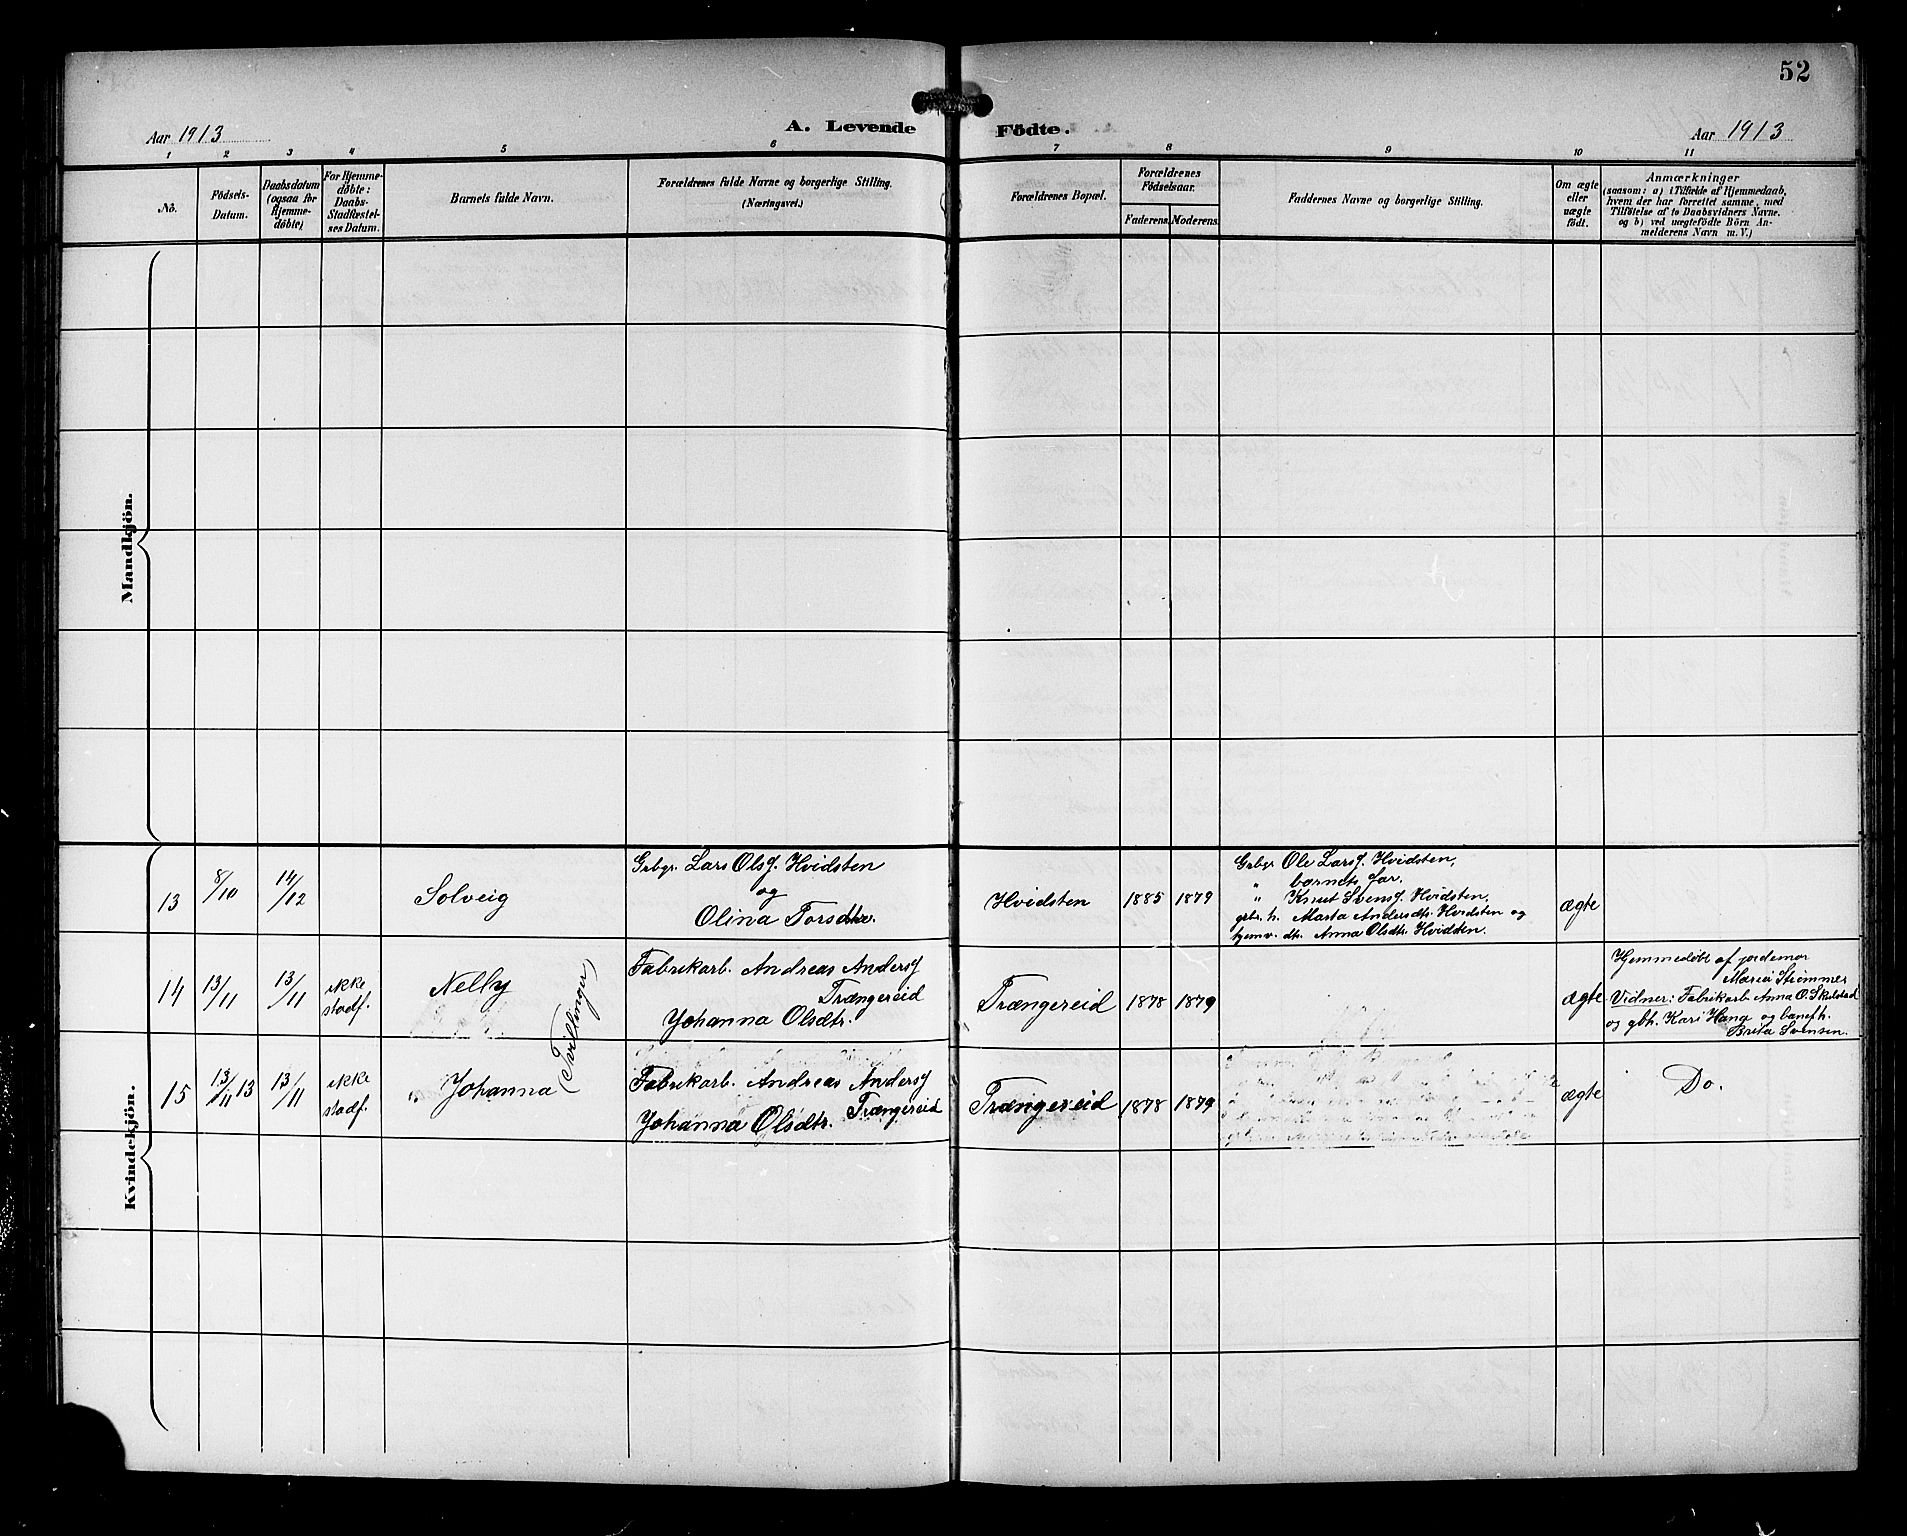 52
Aar 1913
A. Levende
Födte.
Aar 1913
1 2 3 4 5 6 7 8 9 10 11
No.
Födsels-
Datum.
Daabsdatum
(ogsaa for
Hjemme-
døbte)
For Hjemme-
døbte:
Daabs-
Stadfæstel-
ses Datum.
Barnets fulde Navn.
Forældrenes fulde Navne og borgerlige Stilling.
(Næringsvei.)
Forældrenes Bopæl.
Forældrenes
Födselsaar.
Faderens. Moderens.
Faddernes Navne og borgerlige Stilling.
Om ægte
eller
uægte
født.
Anmærkninger
(saasom: a) i Tilfælde af Hjemmedaab,
hvem der har forrettet samme, med
Tilføielse af to Daabsvidners Navne,
og b) ved uægtefødte Börn An-
melderens Navn m. V.)
Mandkjön.
Kvindekjön.
13
8/10
14/12
Solveig
Grbgr. Lars Olsf. Hvidsten
og
Olina Torsdtr.
Hvidsten
1885
1879
Grbgr Ole Larsf. Hvidsten,
" barnets far.
" Knut Svensf. Hvidsten.
grbr. h. Marta Andersdtr. Hvidsten og
hjemv. dtr. Anna Olsdtr. Hvidsten.
ægte
14
13/11
13/11
ikke
stadf.
Nelly
(Tvillinger)
Fabrikarb. Andreas Andersf
Trængereid
Johanna Olsdtr.
Trængereid
1878
1879
ægte
Hjemmedøbt af jordemor
Maria Strømmer
Vidner: Fabrikarb. Anna O. Skulstad
og gbh. Kari Haug og banefh.
Brita Svensen.
15
13/11 13
13/11
ikke
stadf.
Johanna
Fabrikarb. Andreas Andersf
Trængereid
Johanna Olsdtr.
Trængereid
1878
1879
ægte
Do.